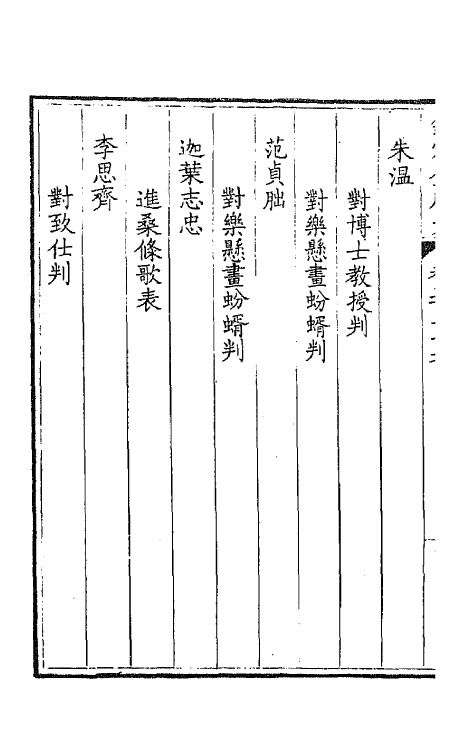 朱温
對博士教授判
對樂懸畫蚡蝑判
范貞朏
對樂懸畫蚡蝑判
迦葉志忠
進桑條歌表
李思齊
對致仕判